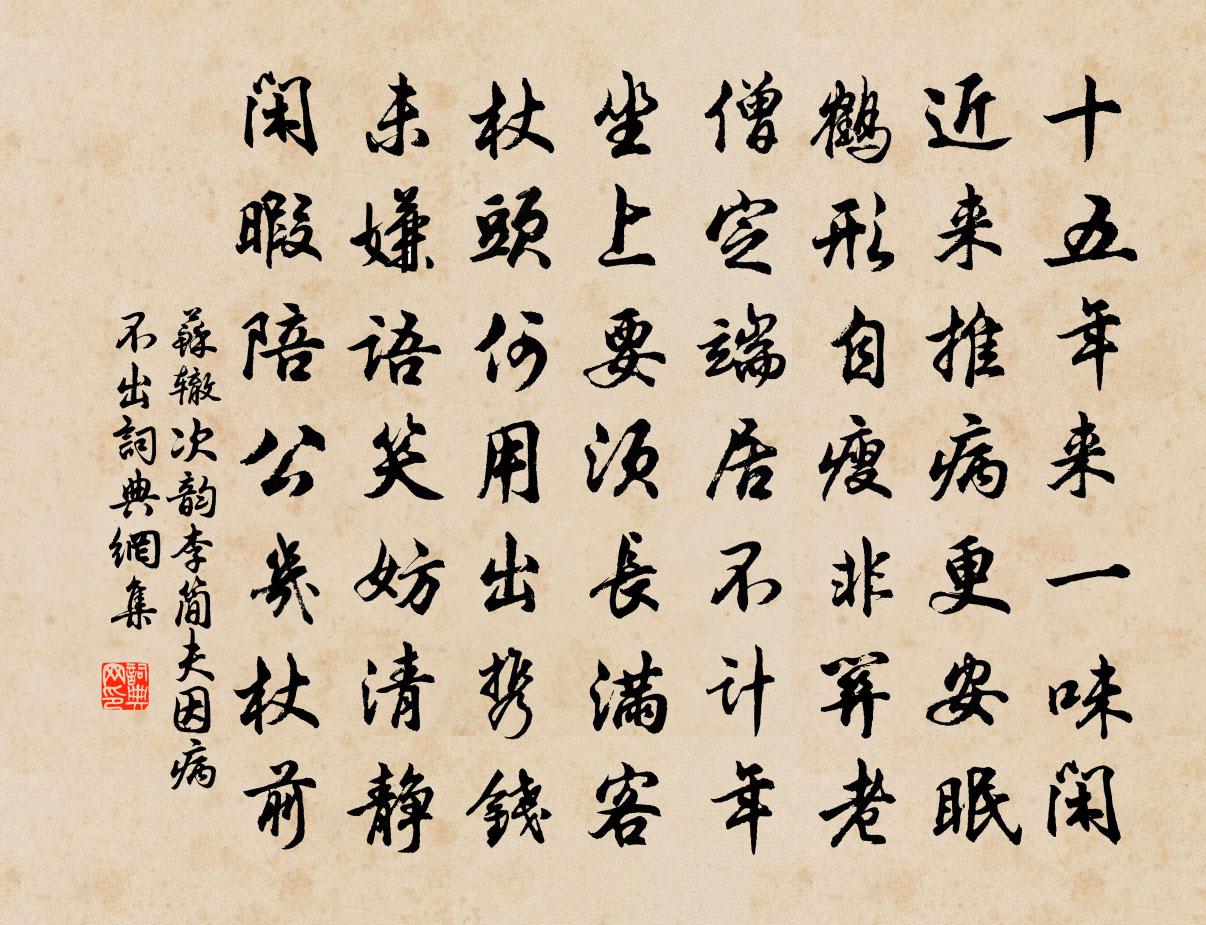 十五年来一味闲
近来推病更安眠
鶴形自瘦非關老
僧定端居不计年
坐上要须長满客
杖頭何用出携錢
未嫌语笑妨清静
闲暇陪公几杖前
蘇辙次韵李简夫因病
不出詞典網集
詞典网印